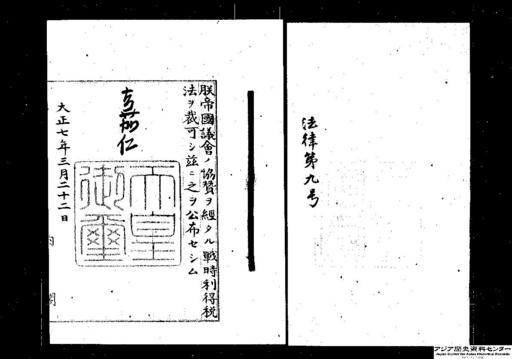 法律第九号
朕帝國議會ノ協賛ヲ經タル戰時利得税
法ヲ裁可シ茲ニ之ヲ公布セシム
嘉仁
天皇
御璽
大正七年三月二十二日
内閣
アジア歴史資料センター
Japan Center for Asian Historical Records